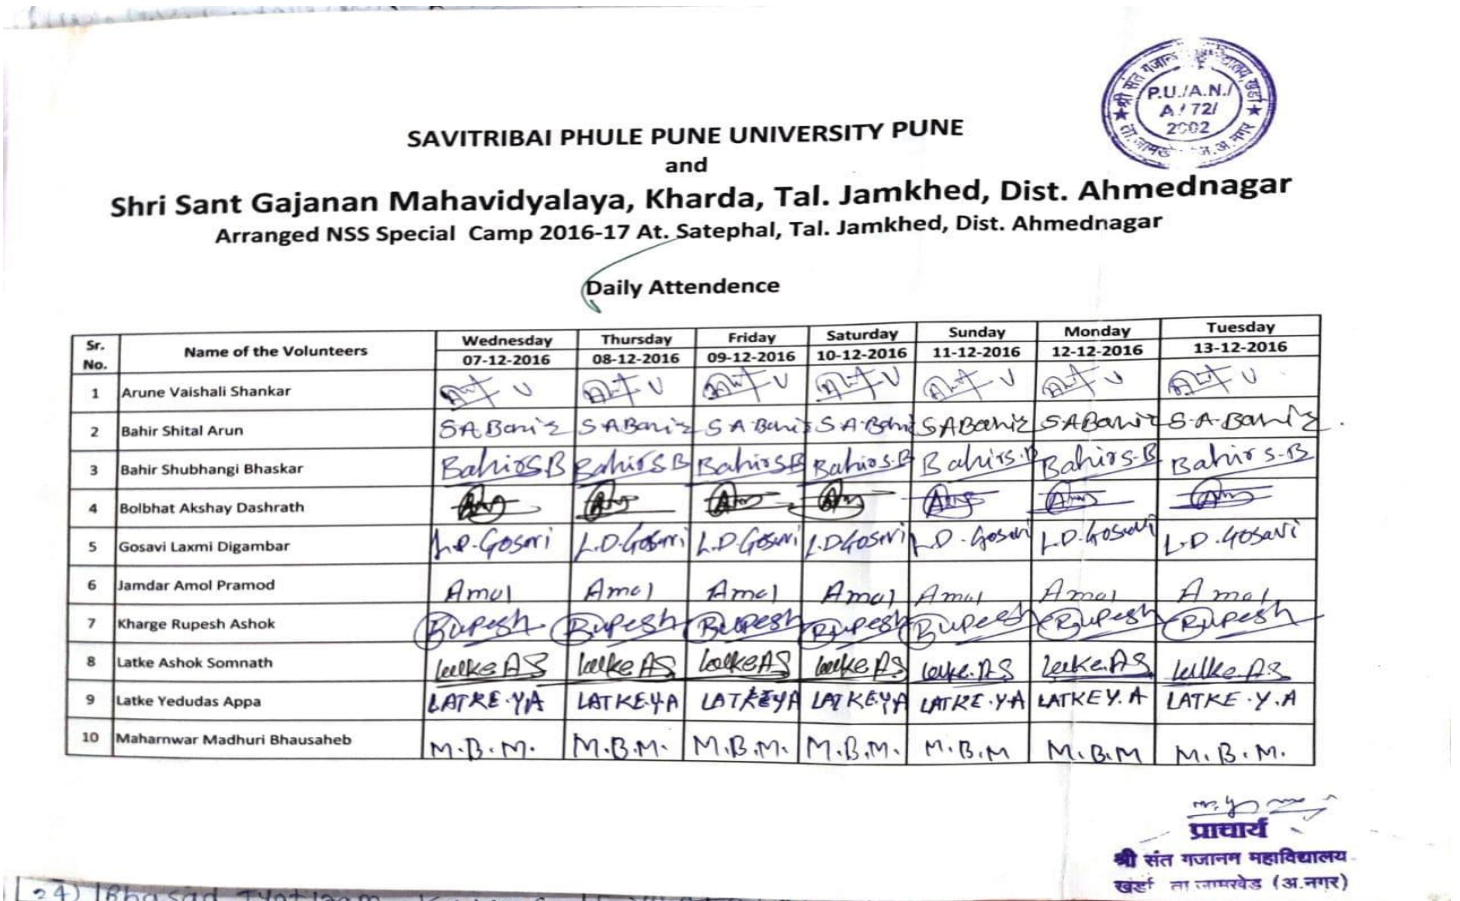 श्री संत गजानन महाविद्यालय, खर्डा
P.U./A.N./
A/72/
2002
SAVITRIBAI PHULE PUNE UNIVERSITY PUNE
and
Shri Sant Gajanan Mahavidyalaya, Kharda, Tal. Jamkhed, Dist. Ahmednagar
Arranged NSS Special Camp 2016-17 At. Satephal, Tal. Jamkhed, Dist. Ahmednagar
Daily Attendence
Sr. No. Name of the Volunteers Wednesday Thursday Friday Saturday Sunday Monday Tuesday
07-12-2016 08-12-2016 09-12-2016 10-12-2016 11-12-2016 12-12-2016 13-12-2016
1 Arune Vaishali Shankar
2 Bahir Shital Arun S A Bahir S A Bahir S A Bahir S A Bahir S A Bahir S A Bahir S.A. Bahir
3 Bahir Shubhangi Bhaskar Bahir S B Bahir S B Bahir S B Bahir S.B Bahir S.B Bahir S.B Bahir S.B
4 Bolbhat Akshay Dashrath
5 Gosavi Laxmi Digambar L.D. Gosavi L.D. Gosavi L.D. Gosavi L.D Gosavi L.D. Gosavi L.D. Gosavi L.D. Gosavi
6 Jamdar Amol Pramod Amol Amol Amol Amol Amol Amol Amol
7 Kharge Rupesh Ashok Rupesh Rupesh Rupesh Rupesh Rupesh Rupesh Rupesh
8 Latke Ashok Somnath Latke AS Latke AS Latke AS Latke AS Latke. AS Latke. AS Latke. A.S
9 Latke Yedudas Appa LATKE. Y.A LATKE Y A LATKE Y A LATKE Y A LATKE. Y.A LATKE Y. A LATKE. Y. A
10 Maharnwar Madhuri Bhausaheb M.B.M. M.B.M. M.B.M. M.B.M. M.B.M M.B.M M.B.M.
प्राचार्य
श्री संत गजानन महाविद्यालय
खर्डा ता जामखेड (अ.नगर)
24)